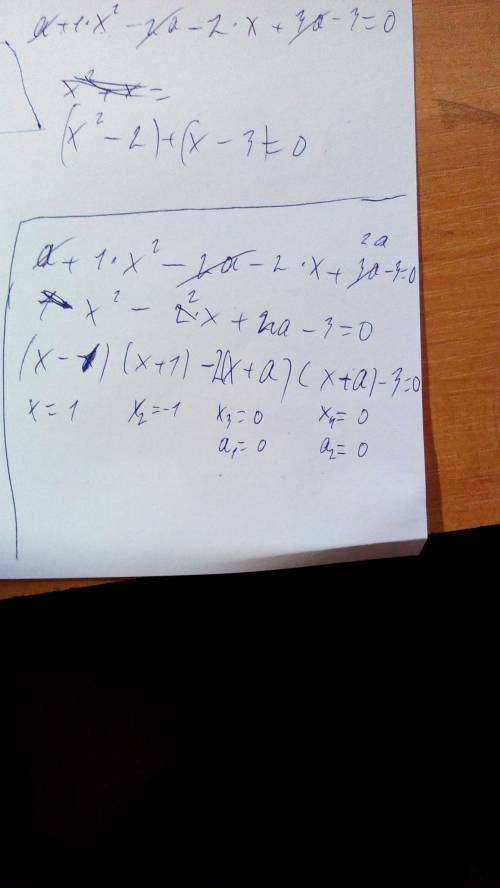 a+1·x² - 2a - 2·x + 3a - 3 = 0
x² + x =
(x² - 2) + (x - 3) = 0
2a
a + 1·x² - 2a - 2·x + 3a - 3 = 0
x² - 2·x + 2a - 3 = 0
(x - 1) (x+1) - 2(x + a) (x+a) - 3 = 0
x = 1 x₂ = -1 x₃ = 0 x₄ = 0
a₁ = 0 a₂ = 0